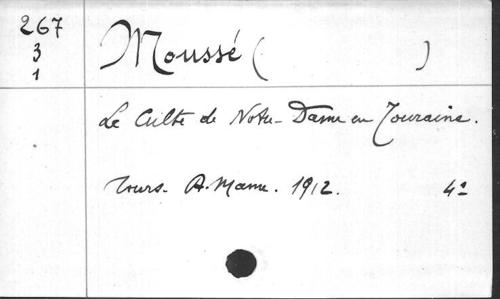 267
3
1
Moussé ( )
Le Culte de Notre-Dame en Touraine.
Tours. A. Mame. 1912. 4º